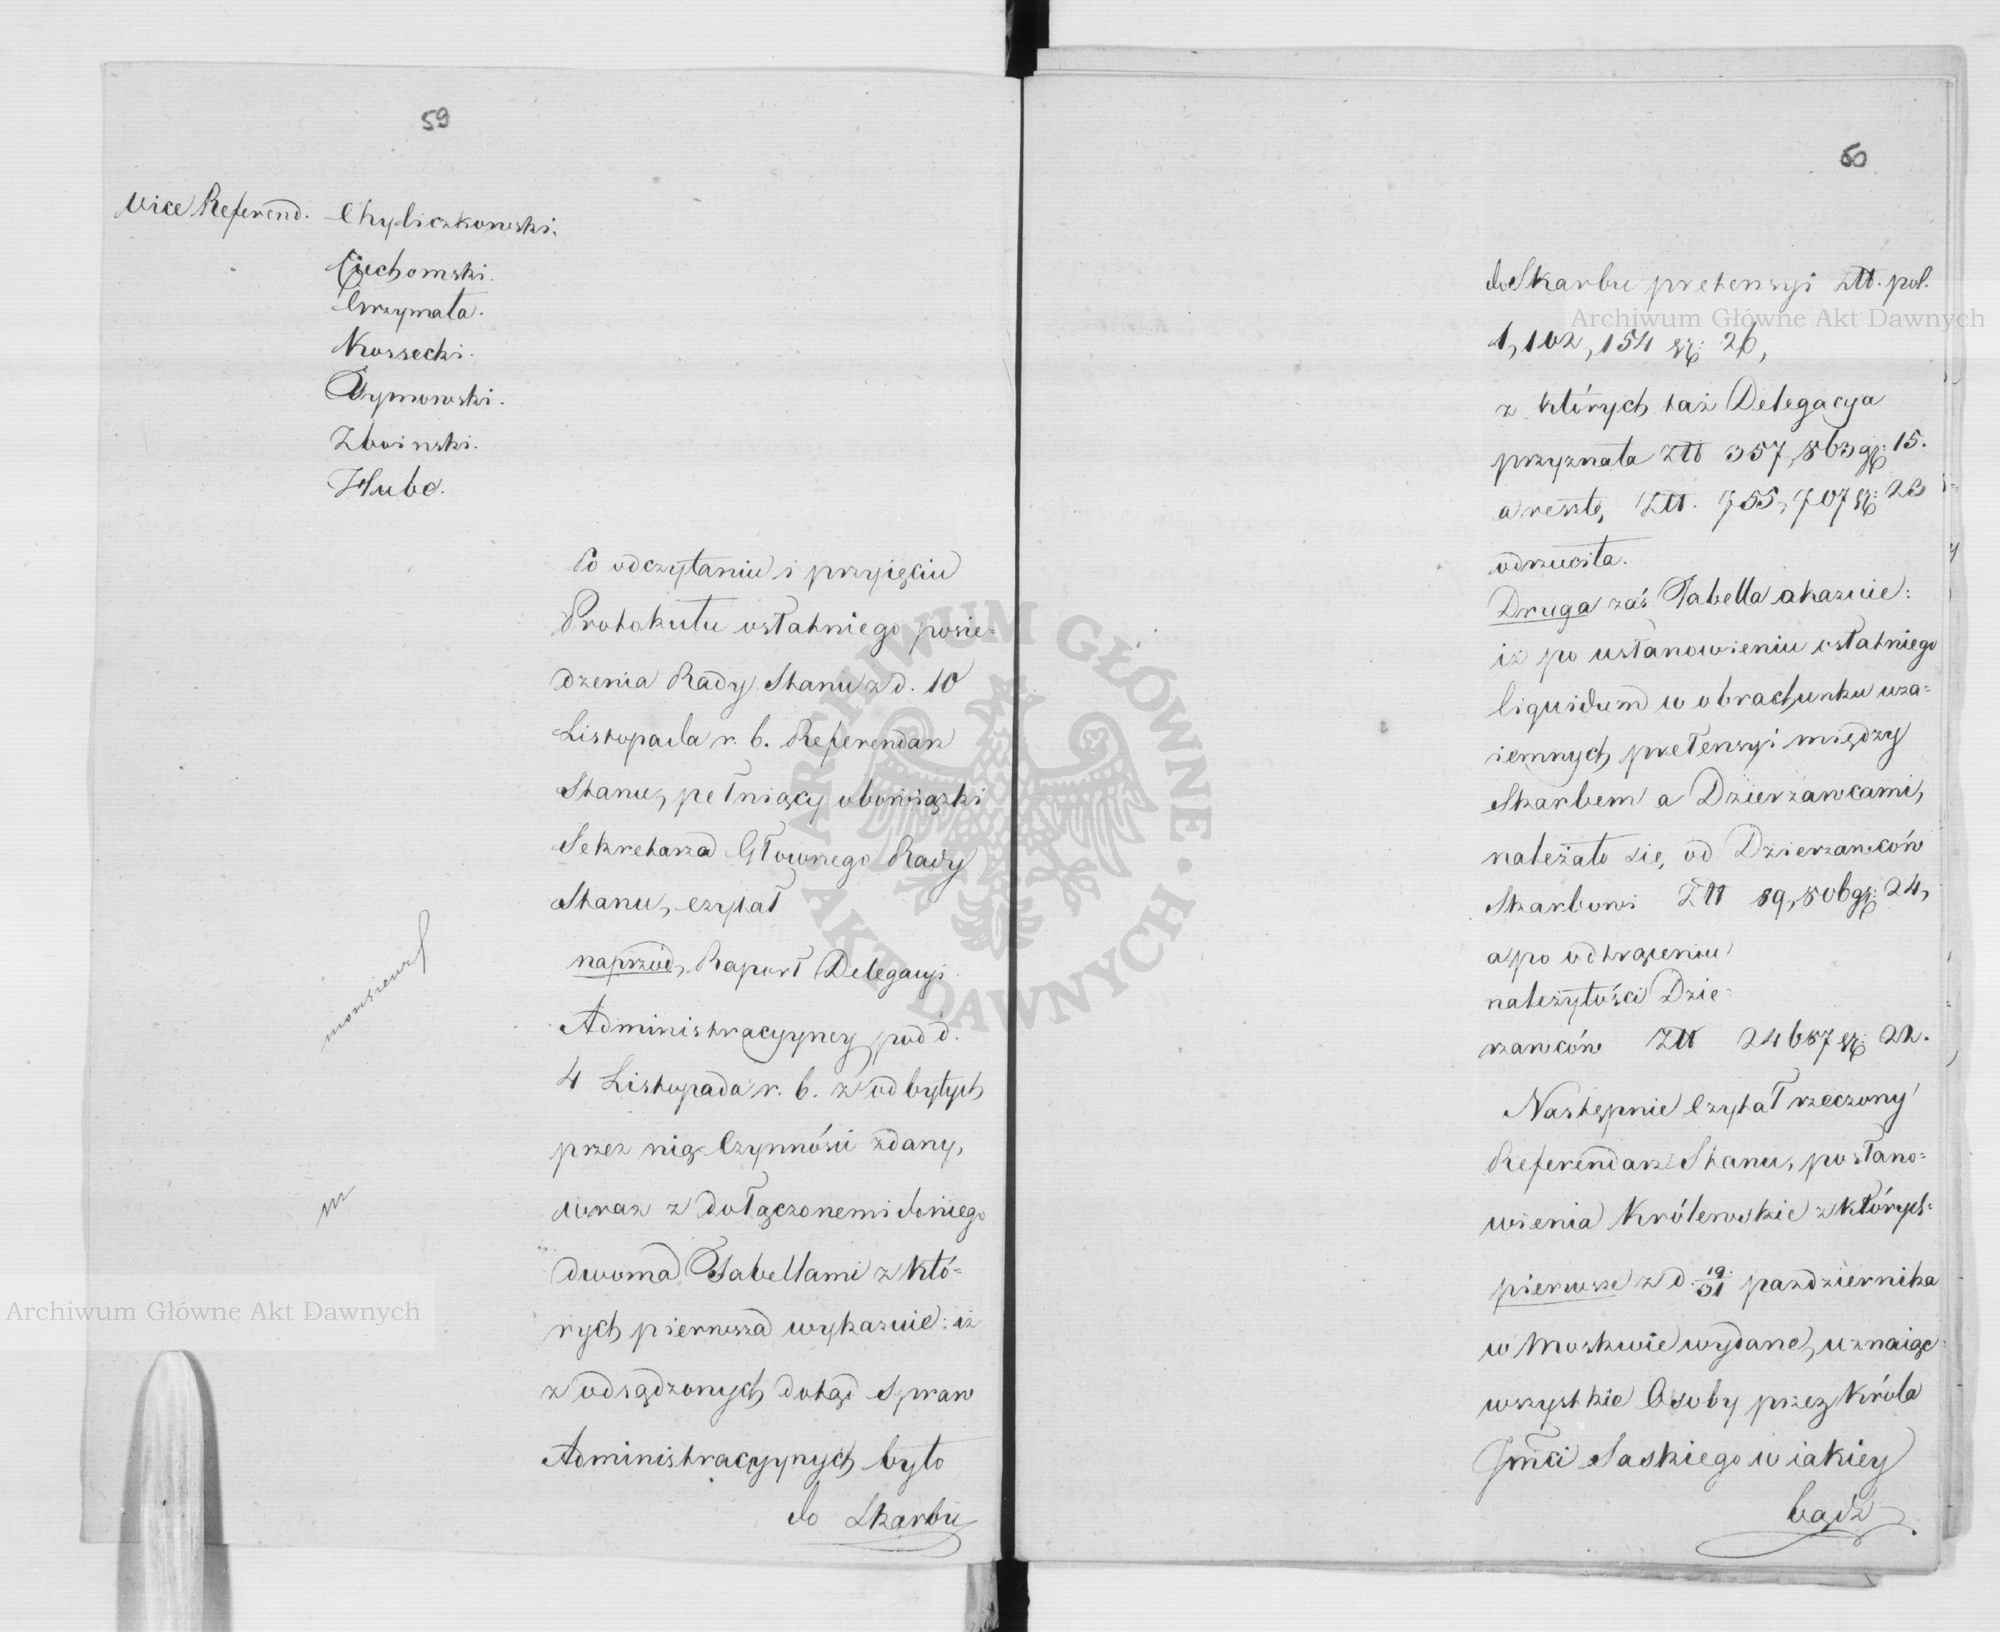 59
Vice Referend. Chyliczkowski.
Ciechomski.
Grzymała.
Kossecki.
Tymowski.
Zboinski.
Hube.
Po odczytaniu i przyięciu
Protokułu ostatniego posie=
dzenia Rady Stanu z d. 10
Listopada r. b. Referendarz
Stanu, pełniący obowiązki
Sekretarza Głownego Rady
Stanu, czytał
naprzód, Raport Delegacyi
Administracyyney pod d.
4 Listopada r. b. z odbytych
przez nią Czynności zdany,
wraz z dołączonemi doniego
dwoma Tabellami z któ=
rych pierwsza wykazuie: iż
z odsądzonych dotąd Spraw
Administracyynych było
do Skarbu
60
do Skarbu pretensyi Złł. pol.
1,102,154 gr: 26,
z których taż Delegacya
przyznała Złł 357,863 gr: 15.
a resztę, Złł. 755,707 gr: 23
odrzuciła.
Druga zaś Tabella okazuie:
iż po ustanowieniu ostatniego
liquidum w obrachunku wza=
iemnych pretensyi między
Skarbem a Dzierżawcami,
należało się, od Dzierzawców
Skarbowi Złł 89,806 gr: 24,
a po odtrąceniu
należytości Dzie=
rzawców Złł 24687 gr: 22.
Następnie Czytał rzeczony
Referendarz Stanu, postano=
wienia Królewskie z których=
pierwsze z d. 19/31 pazdziernika
w Moskwie wydane, uznaiąc
wszystkie Osoby przez Króla
Jmći Saskiego w iakiey
bądź
Archiwum Główne Akt Dawnych
Archiwum Główne Akt Dawnych
ARCHIWUM GŁÓWNE · AKT DAWNYCH ·